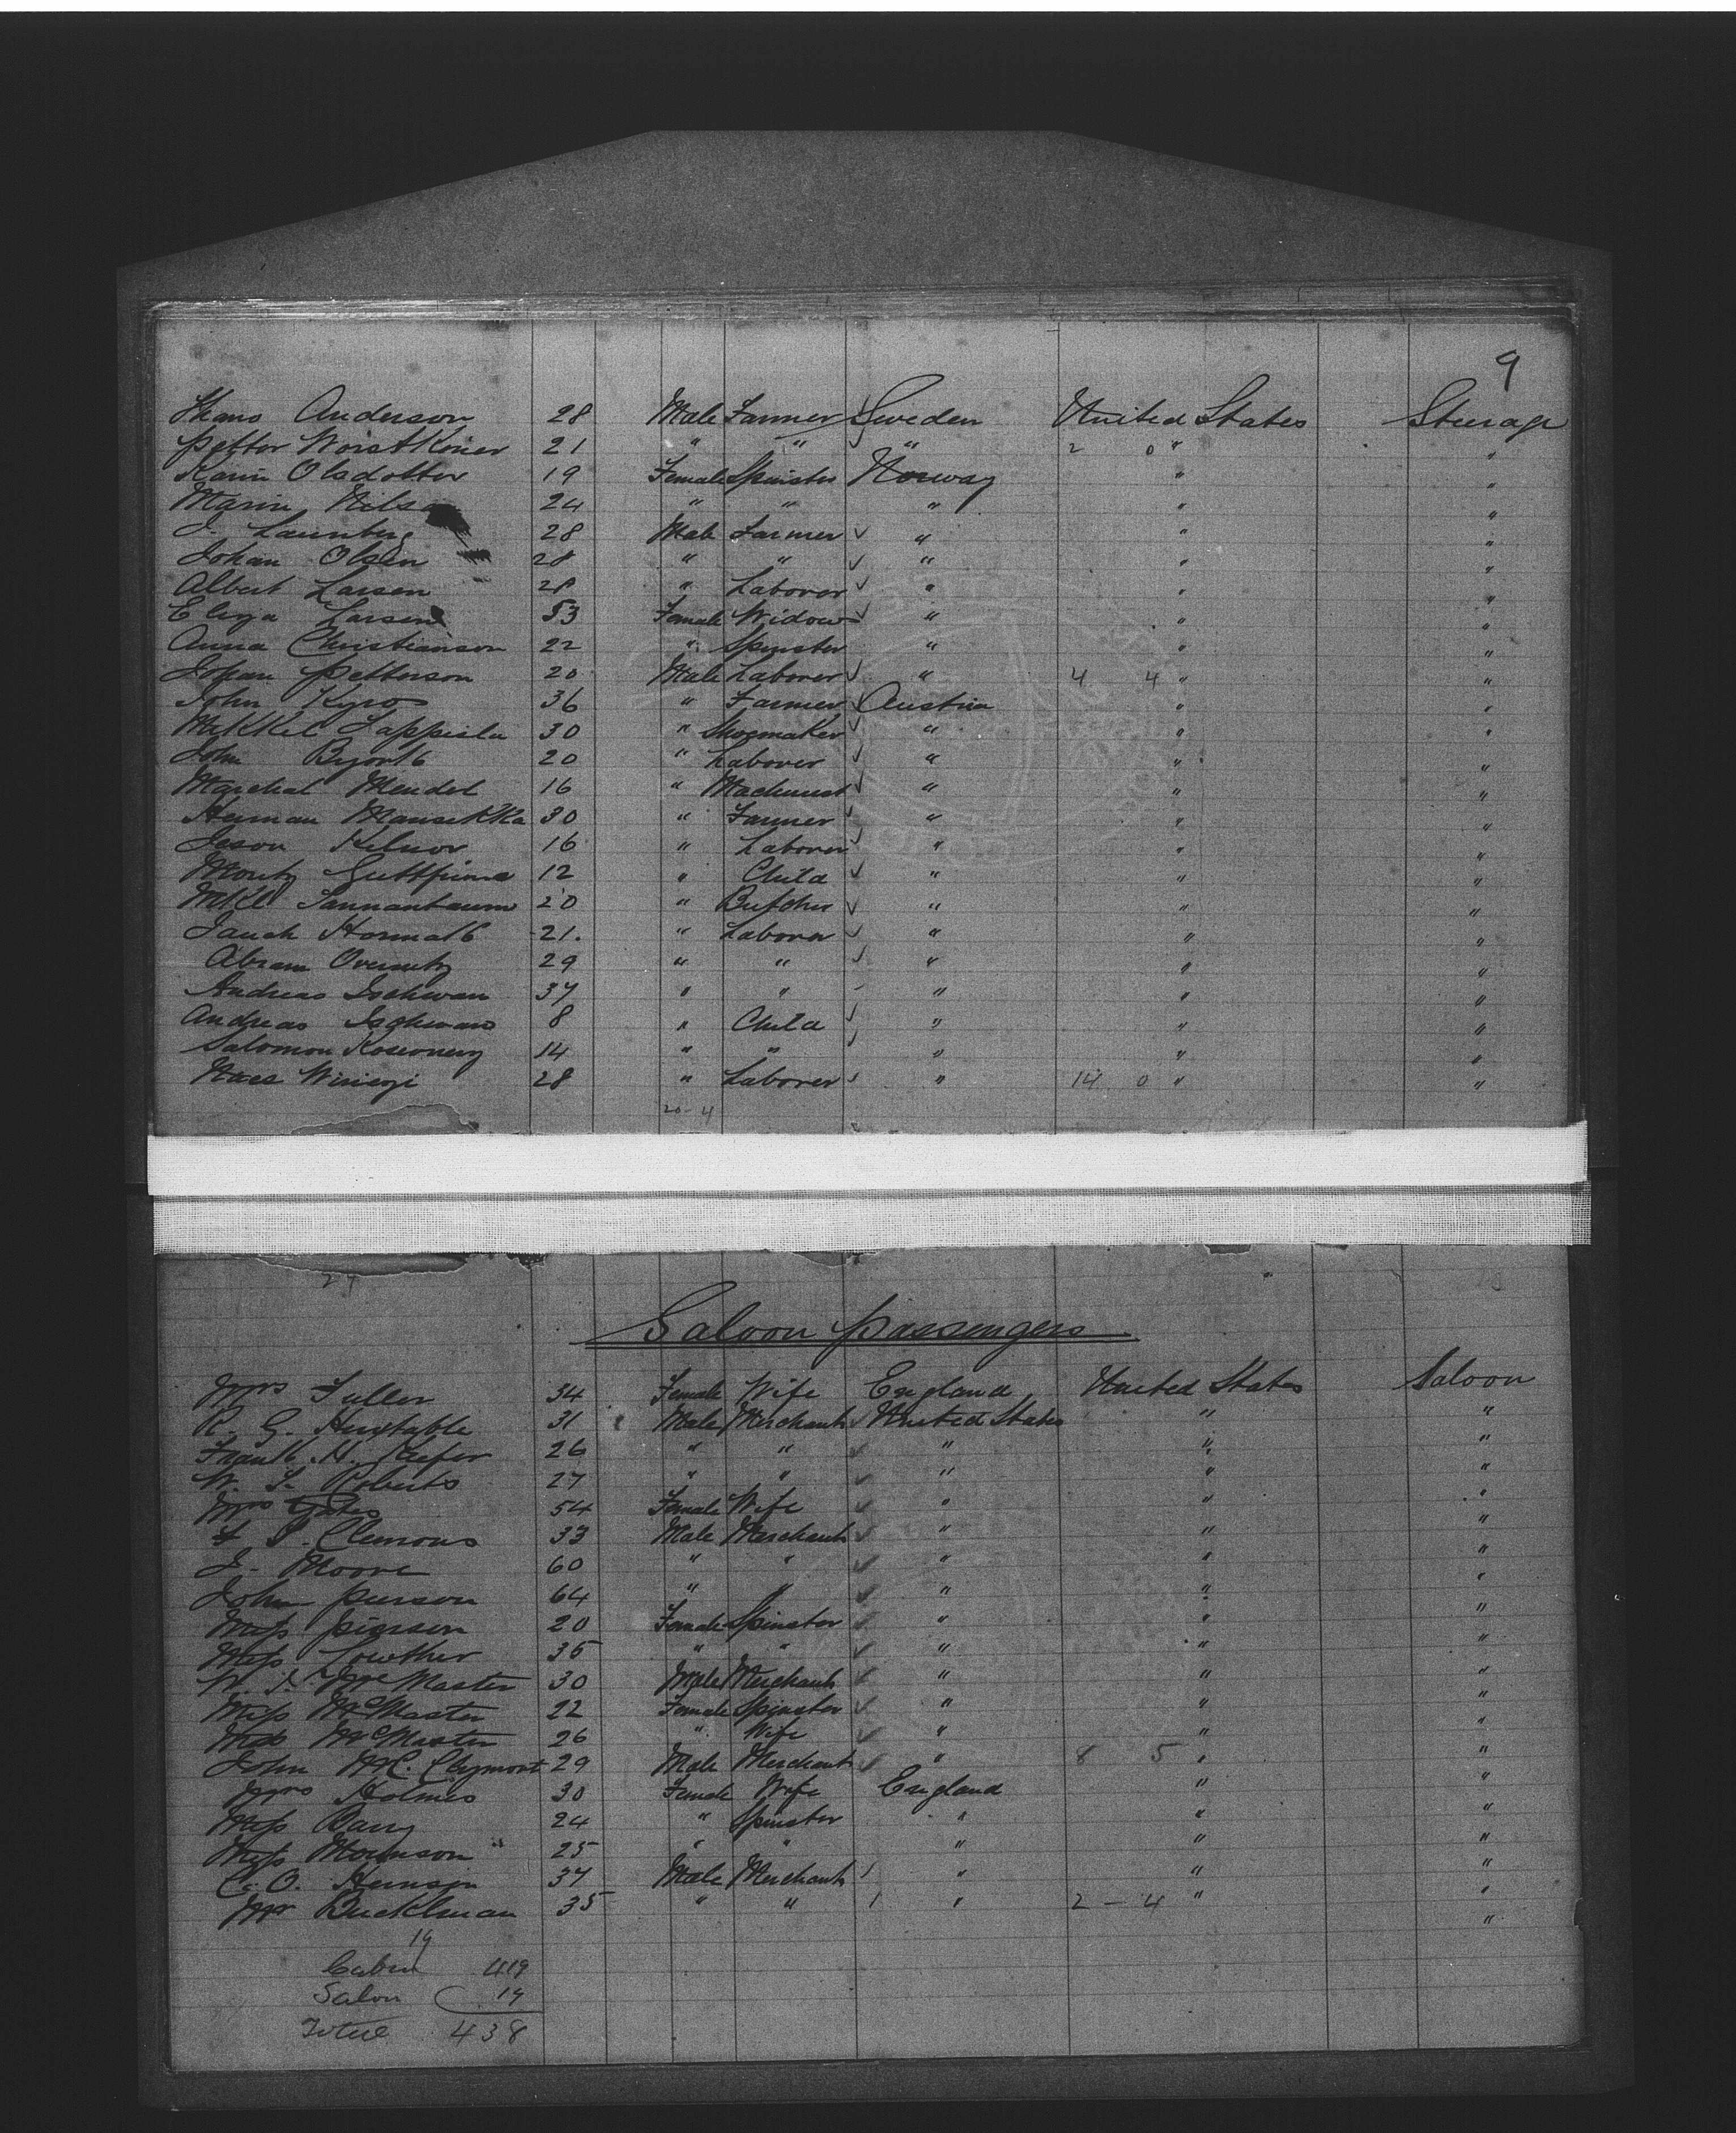 9
Hans Anderson 28 Male Farmer Sweden United States Steerage
Petter 21 " " " 2 0 " "
Karin Olsdotter 19 Female Spinster Norway " "
Marin Nils 24 " " " " "
J. 28 Male Farmer " " "
Johan Olsen 28 " " " " "
Albert Larsen 28 " Laborer " " "
Larsen 53 Female Widow " " "
Anna Christianson 22 " Spinster " " "
Johan Petterson 20 Male Laborer " 4 4 " "
John Kyro 36 " Farmer Austria " "
Mikkel Lappisla 30 " Shoemaker " " "
John 20 " Laborer " " "
Marchal Mendel 16 " Machinist " " "
Herman 30 " Farmer " " "
16 " Laborer " " "
Moritz 12 " Child " " "
Mkl Tannanbaum 20 " Butcher " " "
21. " Laborer " " "
Abram 29 " " " " "
Andreas 37 " " " " "
Andreas 8 " Child " " "
Salomon 14 " " " " "
28 " Laborer " 14 0 " "
20-4
27
Saloon passengers
Mrs Fuller 34 Female Wife England United States Saloon
R. G. Huxtable 31 Male Merchant United States " "
Frank H. Kefer 26 " " " " "
W. S. Roberts 27 " " " " "
Mrs 54 Female Wife " " "
Clemons 33 Male Merchant " " "
J. Moore 60 " " " " "
John Pierson 64 " " " " "
Miss Pierson 20 Female Spinster " " "
Miss Lowther 35 " " " " "
McMaster 30 Male Merchant " " "
Miss McMaster 22 Female Spinster " " "
McMaster 26 " Wife " " "
John 29 Male Merchant " 8 5 " "
Mrs Holmes 30 Female Wife England " "
Miss 24 " Spinster " " "
Miss 25 " " " " "
C. O. 37 Male Merchant " " "
Mr Bucklman 35 " " " 2 - 4 " "
19
Cabin 419
Salon 19
Total 438